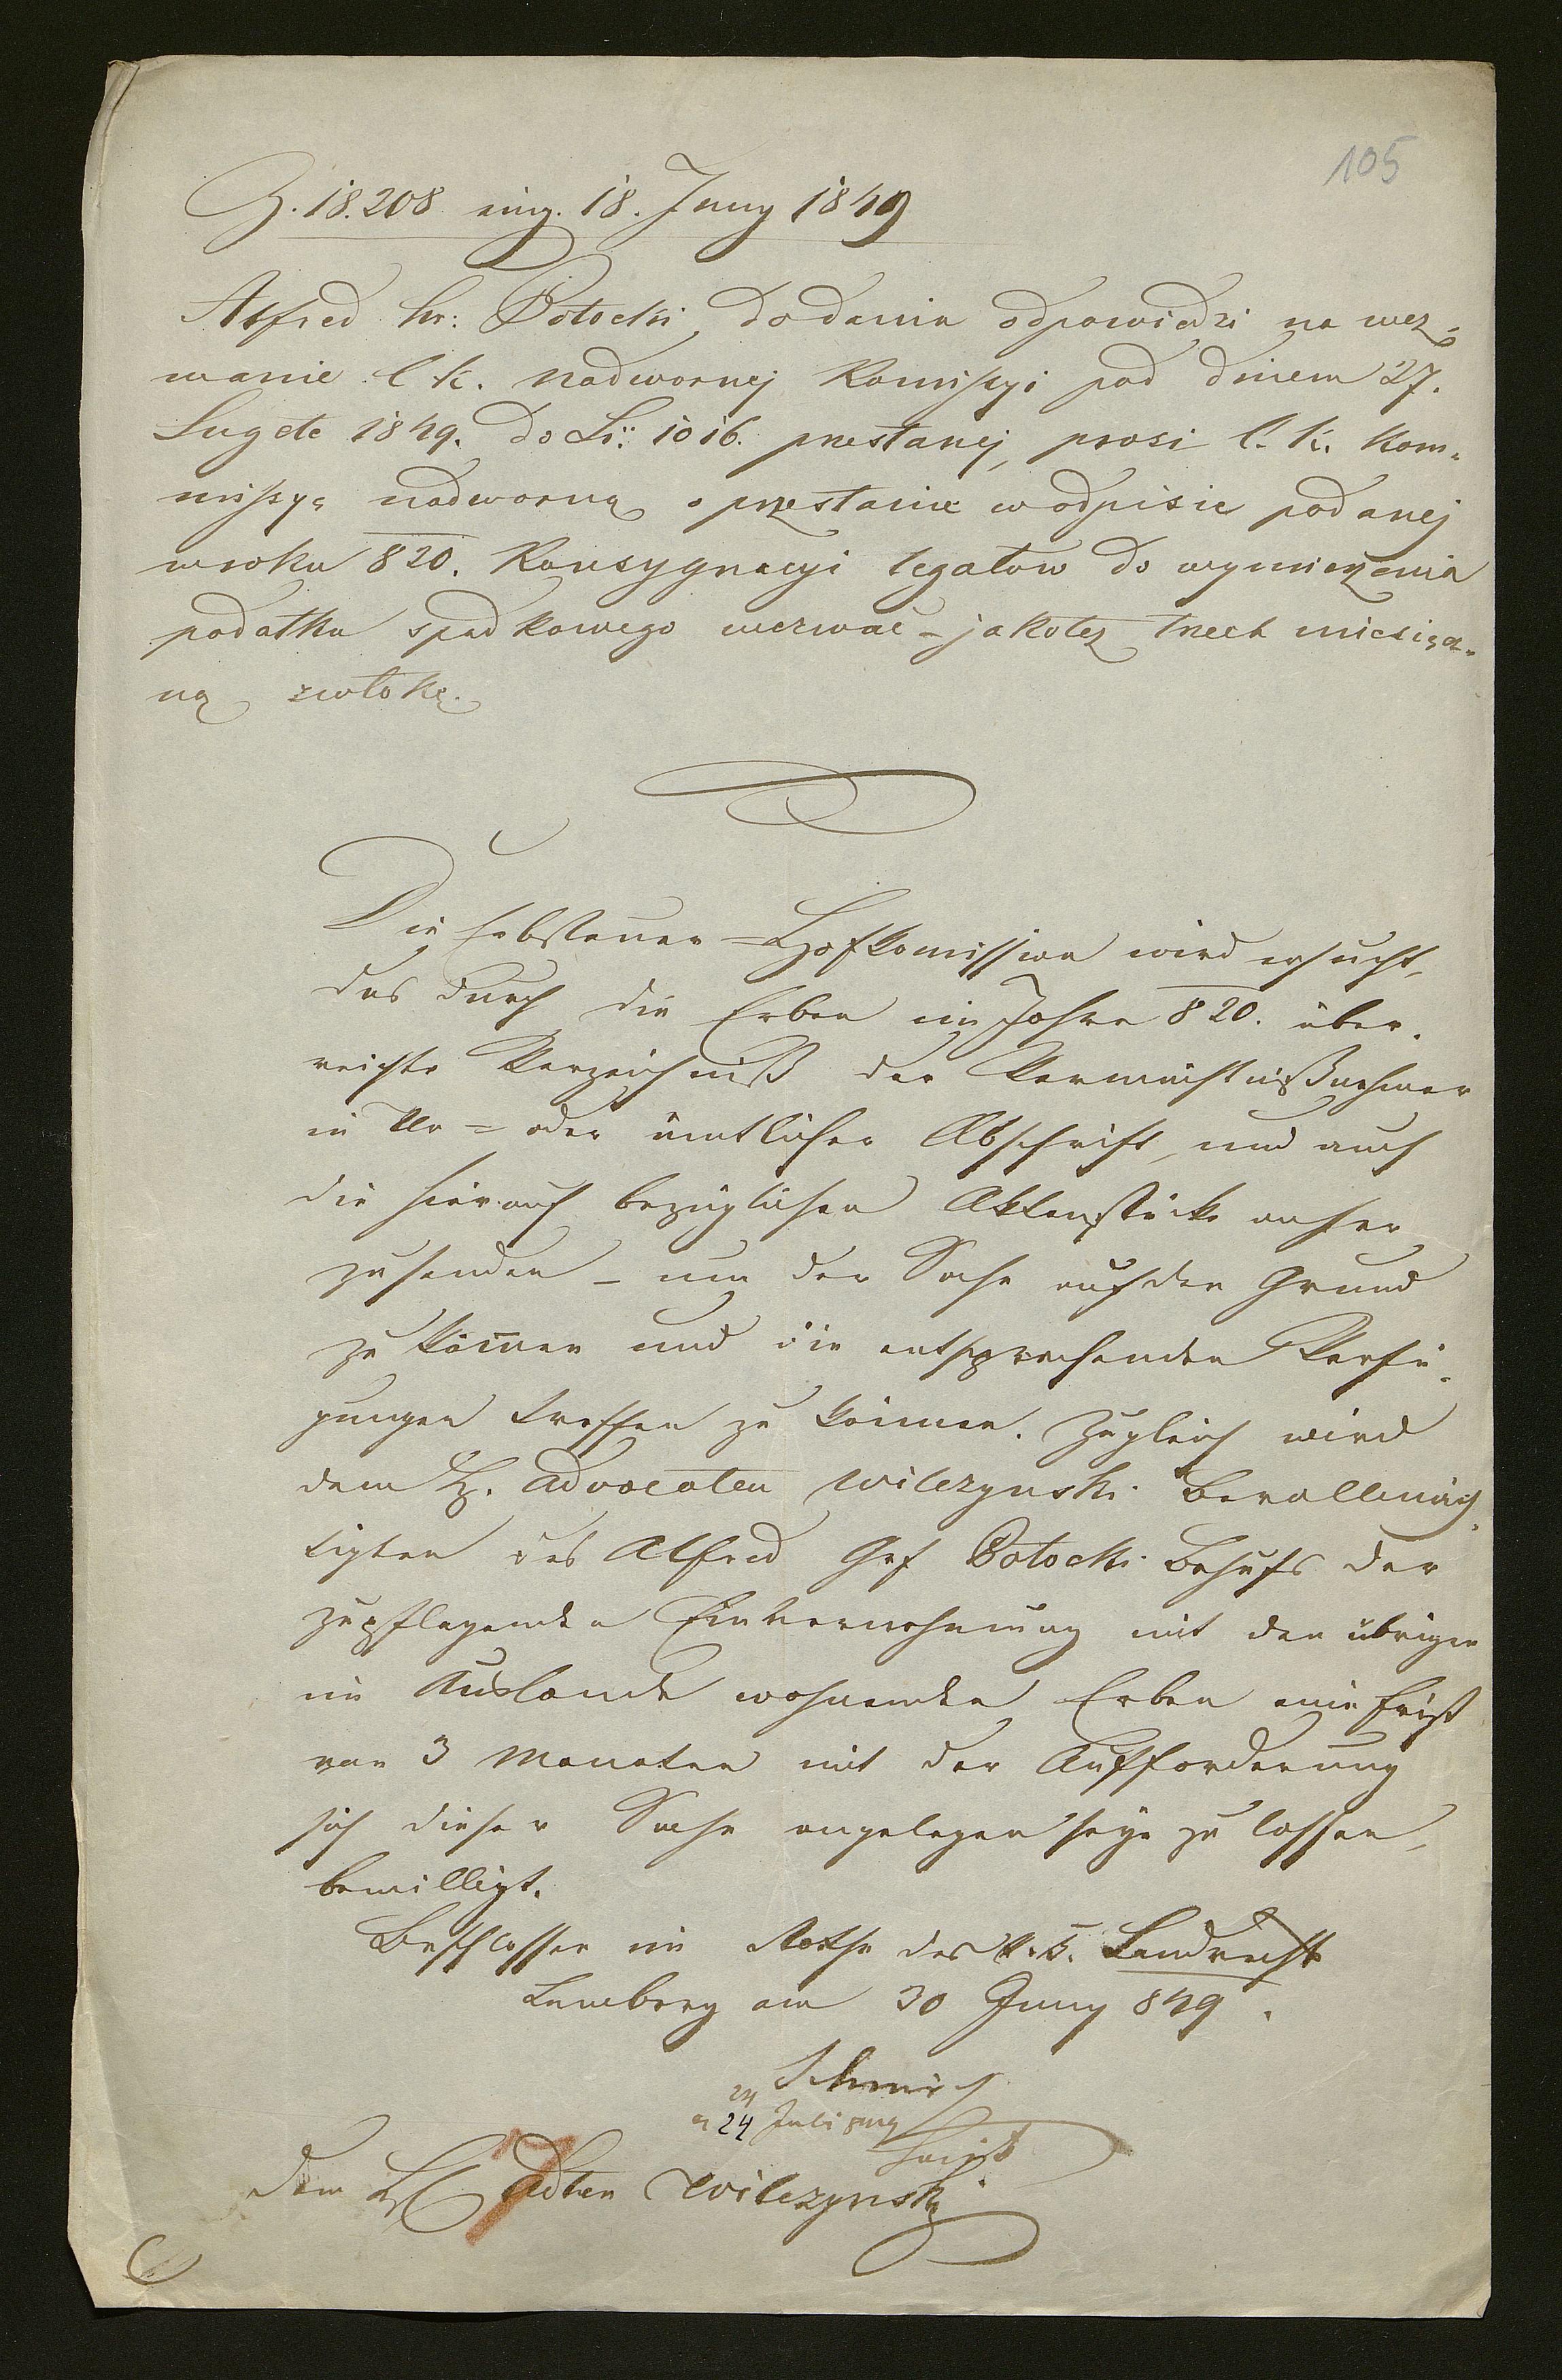 105
Z. 18.208 eing. 18. Juny 1849
Alfred hr: Potocki, do dania odpowiedzi na wez=
wanie C. K. nadwornej Komißyi pod dniem 27.
Lugete 1849. do Li: 1016. przesłanej, prosi C. K. Kom=
mißyą nadworną o przesłanie w odpisie podanej
w roku 820. Konsygnacyi legatów do wymierzenia
podatku spadkowego wezwać – jakoteż trzech miesięcz=
ną zwłokę.
Die Erbsteuer=Hofkomission wird ersucht,
das durch die Erben im Jahre 820. über=
reichte Verzeichniß der Vermächtnißnehmer
in Ur= oder ämtlicher Abschrift, und auch
die hierauf bezüglichen Aktenstücke anher
zu senden – um der Sache auf den Grund
zu kom̄en und die entsprechenden Verfü=
gungen treffen zu können. Zugleich wird
dem H. Advocaten Wilczynski Bevollmäch=
tigten des Alfred Grf Potocki Behufs der
zupflegenden Einvernehmung mit den übrigen
im Auslande wohnenden Erben eine Frist
von 3 Monaten mit der Aufforderung
sich dieser Sache angelegen seyn zu lassen,
bewilligt.
Beschlossen im Rathe des k. k. Landrechts
Lemberg am 30 Juny 849.
24 Juli
Dem H Adten Wilczynski